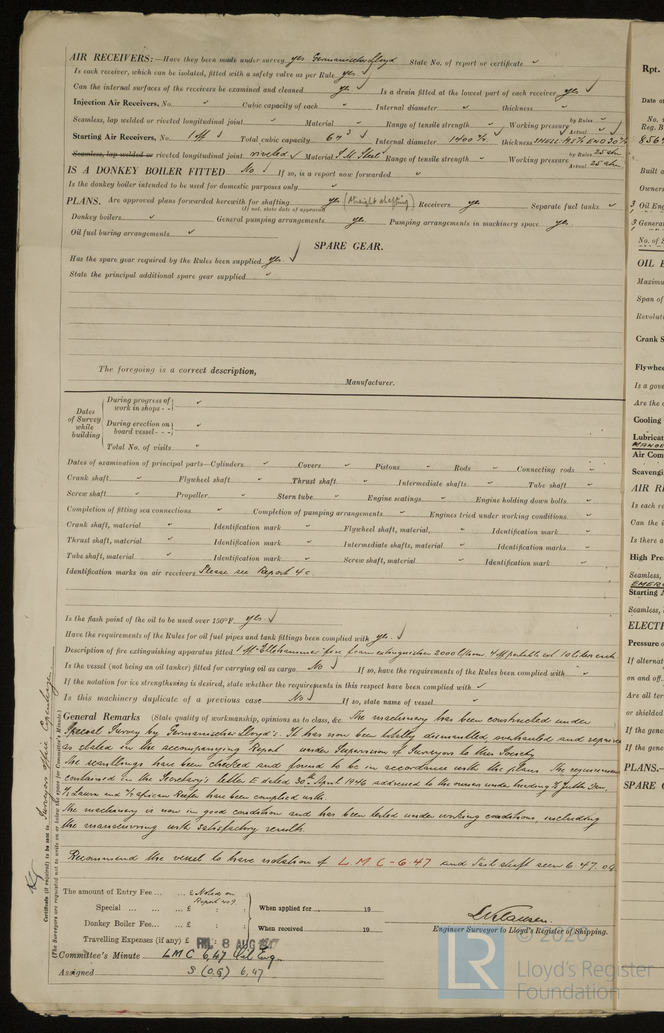 AIR RECEIVERS:—Have they been made under survey yes Germanischer Lloyd State No. of report or certificate "
Is each receiver, which can be isolated, fitted with a safety valve as per Rule yes
Can the internal surfaces of the receivers be examined and cleaned yes Is a drain fitted at the lowest part of each receiver yes
Injection Air Receivers, No. " Cubic capacity of each " Internal diameter " thickness "
Seamless, lap welded or riveted longitudinal joint " Material " Range of tensile strength " Working pressure by Rules " Actual "
Starting Air Receivers, No. 1 off Total cubic capacity 6 Internal diameter 1400 thickness SHELL END
Seamless, lap welded or riveted longitudinal joint riveted Material S.M. Steel Range of tensile strength " Working pressure by Rules 25 atm Actual 25 atm
IS A DONKEY BOILER FITTED No If so, is a report now forwarded "
Is the donkey boiler intended to be used for domestic purposes only "
PLANS. Are approved plans forwarded herewith for shafting yes (straight shafting) Receivers yes Separate fuel tanks "
(If not, state date of approval)
Donkey boilers " General pumping arrangements yes Pumping arrangements in machinery space yes
Oil fuel buring arrangements "
SPARE GEAR.
Has the spare gear required by the Rules been supplied yes
State the principal additional spare gear supplied "
The foregoing is a correct description,
Manufacturer.
Dates of Survey while building
During progress of work in shops - - "
During erection on board vessel - - - "
Total No. of visits "
Dates of examination of principal parts—Cylinders " Covers " Pistons " Rods " Connecting rods "
Crank shaft " Flywheel shaft " Thrust shaft " Intermediate shafts " Tube shaft "
Screw shaft " Propeller " Stern tube " Engine seatings " Engine holding down bolts "
Completion of fitting sea connections " Completion of pumping arrangements " Engines tried under working conditions "
Crank shaft, material " Identification mark " Flywheel shaft, material, " Identification mark "
Thrust shaft, material " Identification mark " Intermediate shafts, material " Identification marks "
Tube shaft, material " Identification mark " Screw shaft, material " Identification mark "
Identification marks on air receivers Please see Report 4c
Is the flash point of the oil to be used over 150°F. yes
Have the requirements of the Rules for oil fuel pipes and tank fittings been complied with yes
Description of fire extinguishing apparatus fitted 1 off fire foam extinguisher 2000 4 off portable ext. 10 liter each
Is the vessel (not being an oil tanker) fitted for carrying oil as cargo No If so, have the requirements of the Rules been complied with "
If the notation for ice strengthening is desired, state whether the requirements in this respect have been complied with "
Is this machinery duplicate of a previous case No If so, state name of vessel "
General Remarks (State quality of workmanship, opinions as to class, &c. The machinery has been constructed under
Special Survey by Germanischer Lloyd's. It has now been totally dismantled, overhauled and repaired
as stated in the accompanying Report under Supervision of Surveyors to this Society
The scantlings have been checked and found to be in accordance with the plans. The requirements
contained in the Secretary's letter E dated 30th April 1946 addressed to the owners under heading
and African Reefer have been complied with
The machinery is now in good condition and has been tested under working conditions, including
the manœuvring with satisfactory results.
Recommend the vessel to have notation of L M C - 6.47 and tail shaft seen 6.47. OG
Certificate (if required) to be sent to Surveyors office, Copenhagen.
(The Surveyors are requested not to write on or below the space for Committee's Minute.)
The amount of Entry Fee ... £ Noted on
Special ... £ Report No 9
Donkey Boiler Fee... £
Travelling Expenses (if any) £
When applied for 19
When received 19
Engineer Surveyor to Lloyd's Register of Shipping.
FRI. 8 AUG 1947
Committee's Minute LMC 6,47 Oil Eng.
Assigned S (O.G) 6,47
© 2020
LR
Lloyd's Register
Foundation
Rpt.
Date of
No. i
Reg. B
Built a
Owners
3 Oil Eng
3 Genera
No. of S
OIL E
Maximu
Span of
Revolut
Crank S
Flywhee
Is a gove
Are the c
Cooling
Lubricat
Air Com
Scavengi
AIR R
Is each re
Can the i
Is there a
High Pre
Seamless,
Starting A
Seamless,
ELECT
Pressure o
If alternat
on and off
Are all ter
or shielded
If the gene
If the gene
PLANS.—
SPARE G